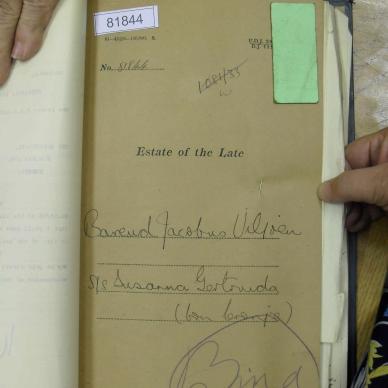 81844
No. 8144
1081/35
Estate of the Late
Barend Jacobus Viljoen
s/s Susanna Gertruida
(born Cronje)
Bind